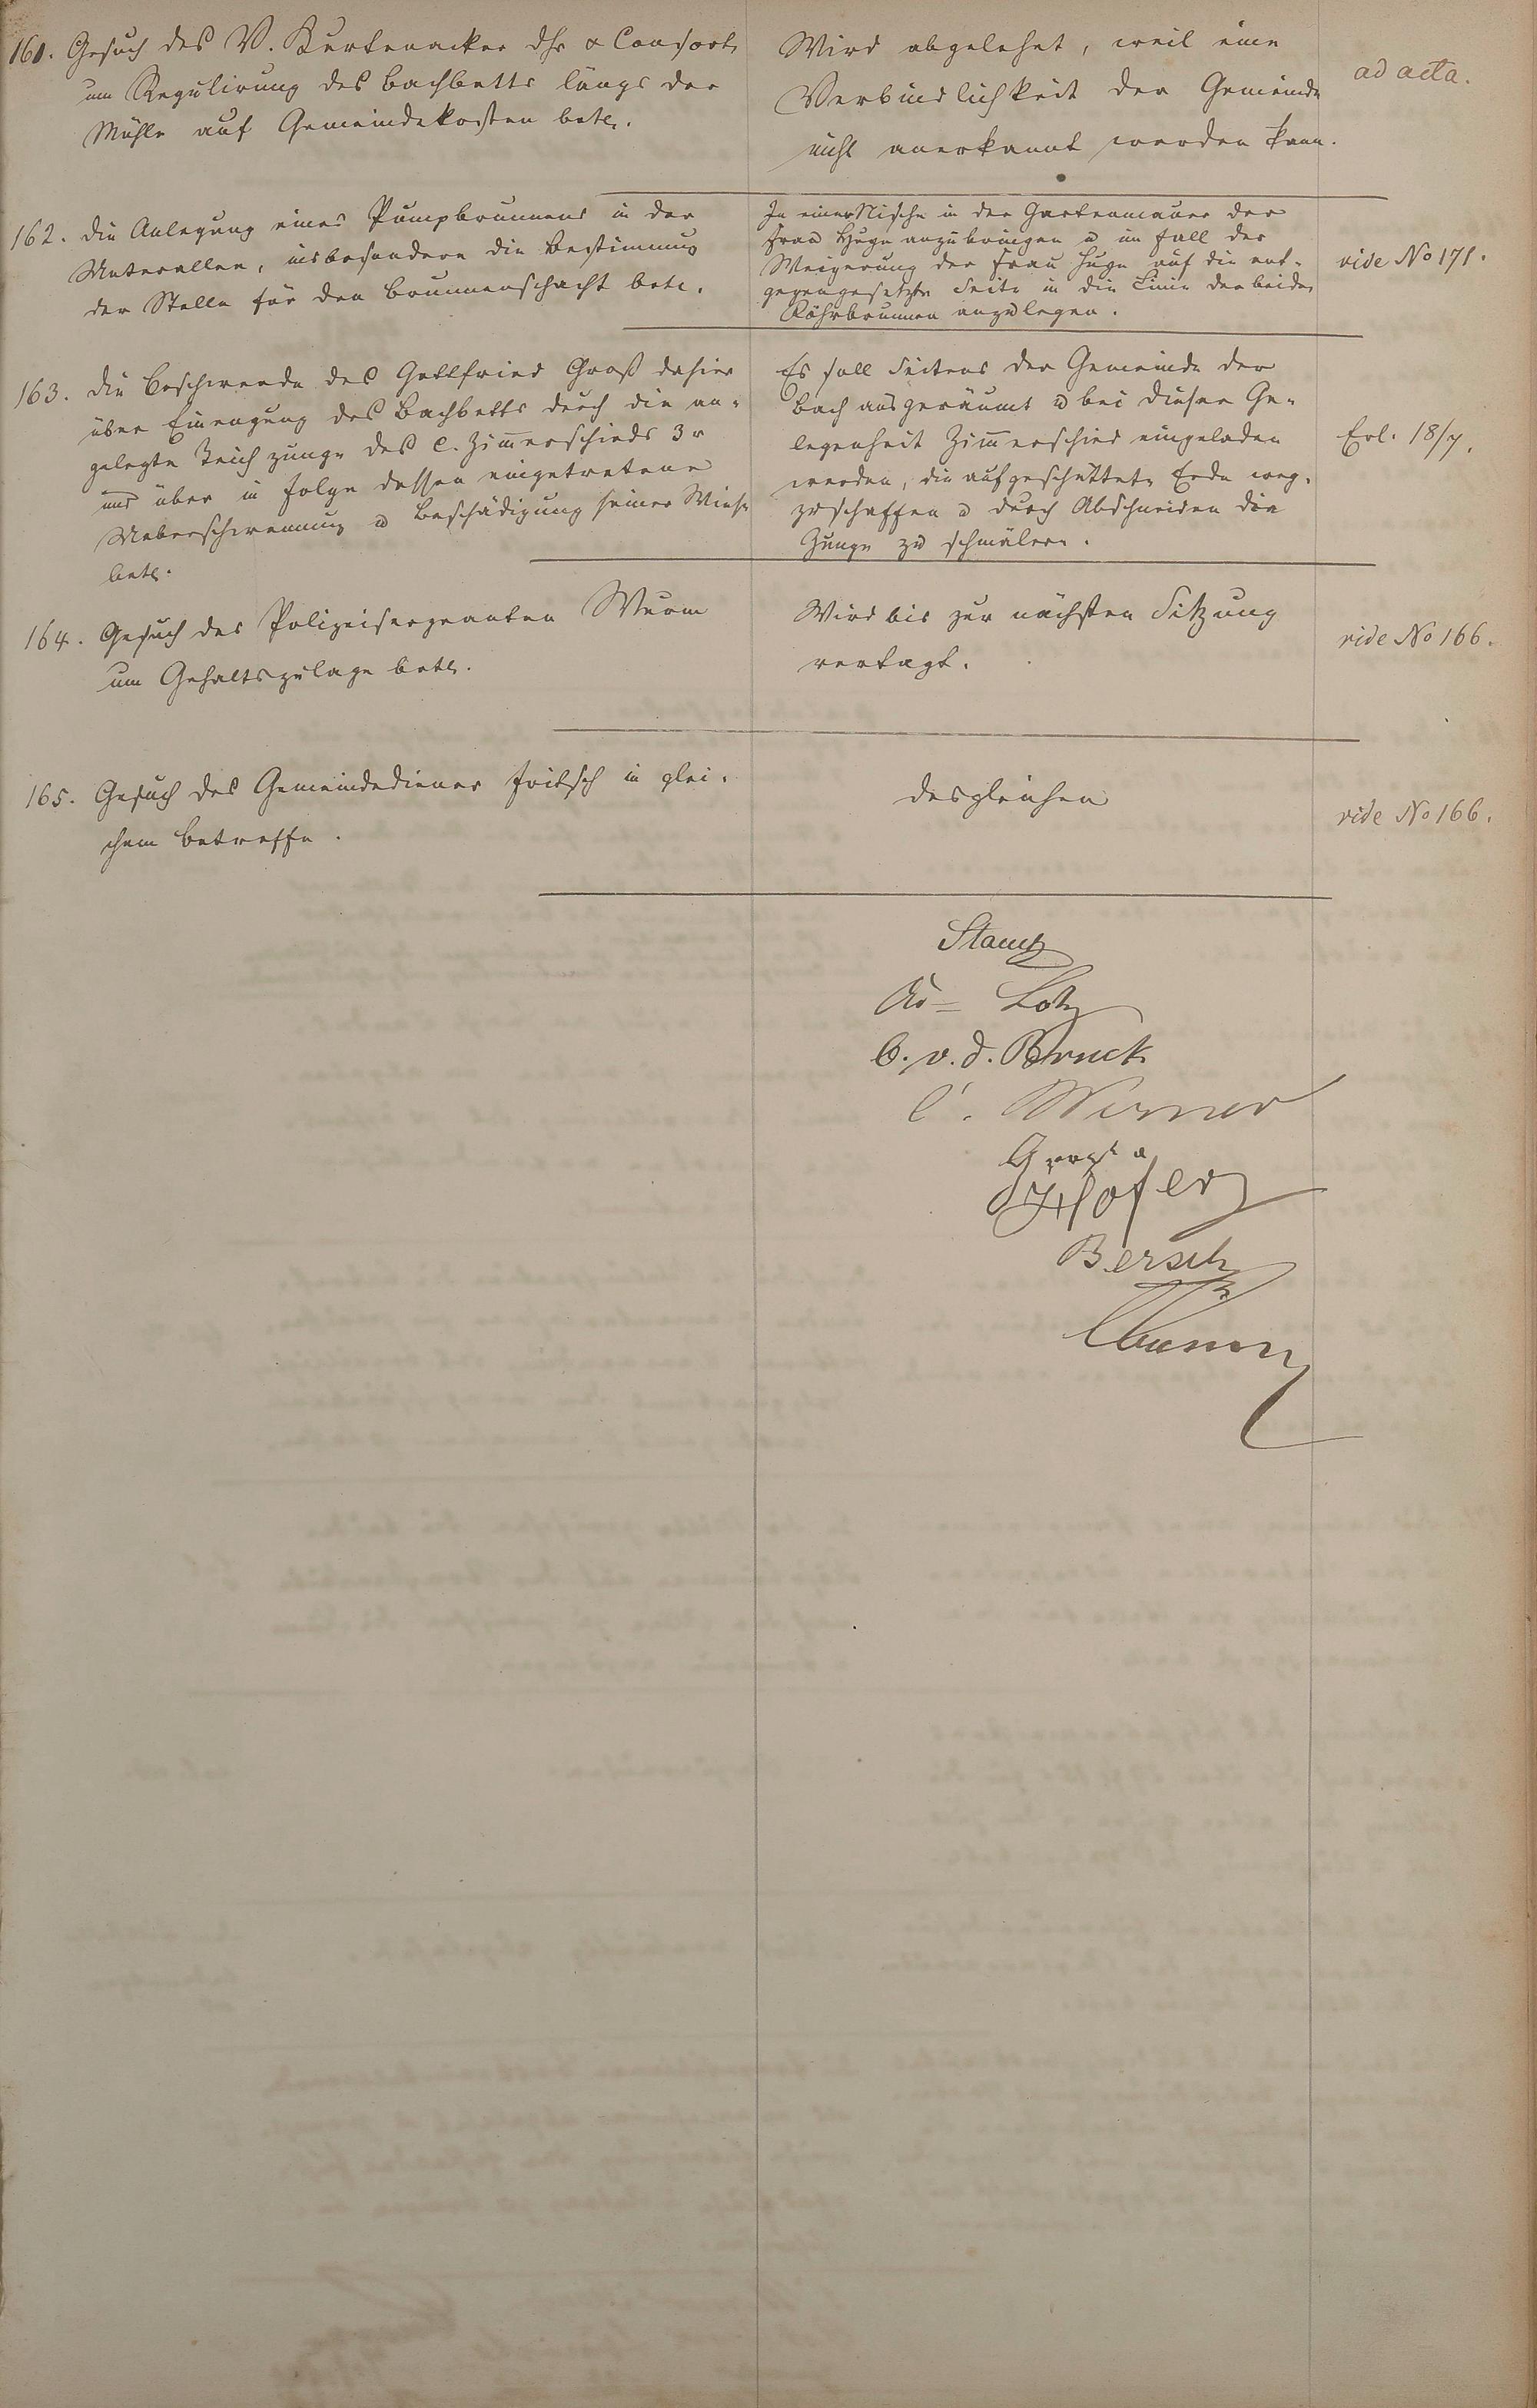 161. Gesuch des V. Kurtenacker dhr & Consort.
um Regulirung des Bachbetts längs der
Mühle auf Gemeindekosten betr.
Wird abgelehnt, weil eine
Verbindlichkeit der Gemeinde
nicht anerkannt werden kann.
ad acta.
162. die Anlegung eines Pumpbrunnens in der
Unterallee, insbesondere die Bestimmung
der Stelle für den Brunnenschacht betr.
In einer Nische in der Gartenmauer der
Frau Huge anzubringen u im Fall der
Weigerung der Frau Huge auf die ent-
gegengesetzte Seite in die Linie der beiden
Röhrbrunnen anzulegen.
vide No 171.
163. die Beschwerde des Gottfried Groß dahier
über Einengung des Bachbetts durch die an-
gelegte Teichzunge des C. Zimmerschieds 3r
und über in Folge dessen eingetretene
Ueberschwemmung u Beschädigung seiner Wiese
betr.
Es soll Seitens der Gemeinde der
Bach ausgeräumt u bei dieser Ge-
legenheit Zimmerschied eingeladen
werden, die aufgeschüttete Erde weg-
zuschaffen u durch Abschneiden die
Zunge zu schmälern.
Erl. 18/7.
164. Gesuch des Polizeisergeanten Wurm
um Gehaltszulage betr.
Wird bis zur nächsten Sitzung
vertagt.
vide No 166.
165. Gesuch des Gemeindediener Fritsch in glei-
chem Betreffe.
desgleichen
vide No 166.
Stamm
Lotz
C. v. d. Bruck
C. Werner
Hofer
Bersch